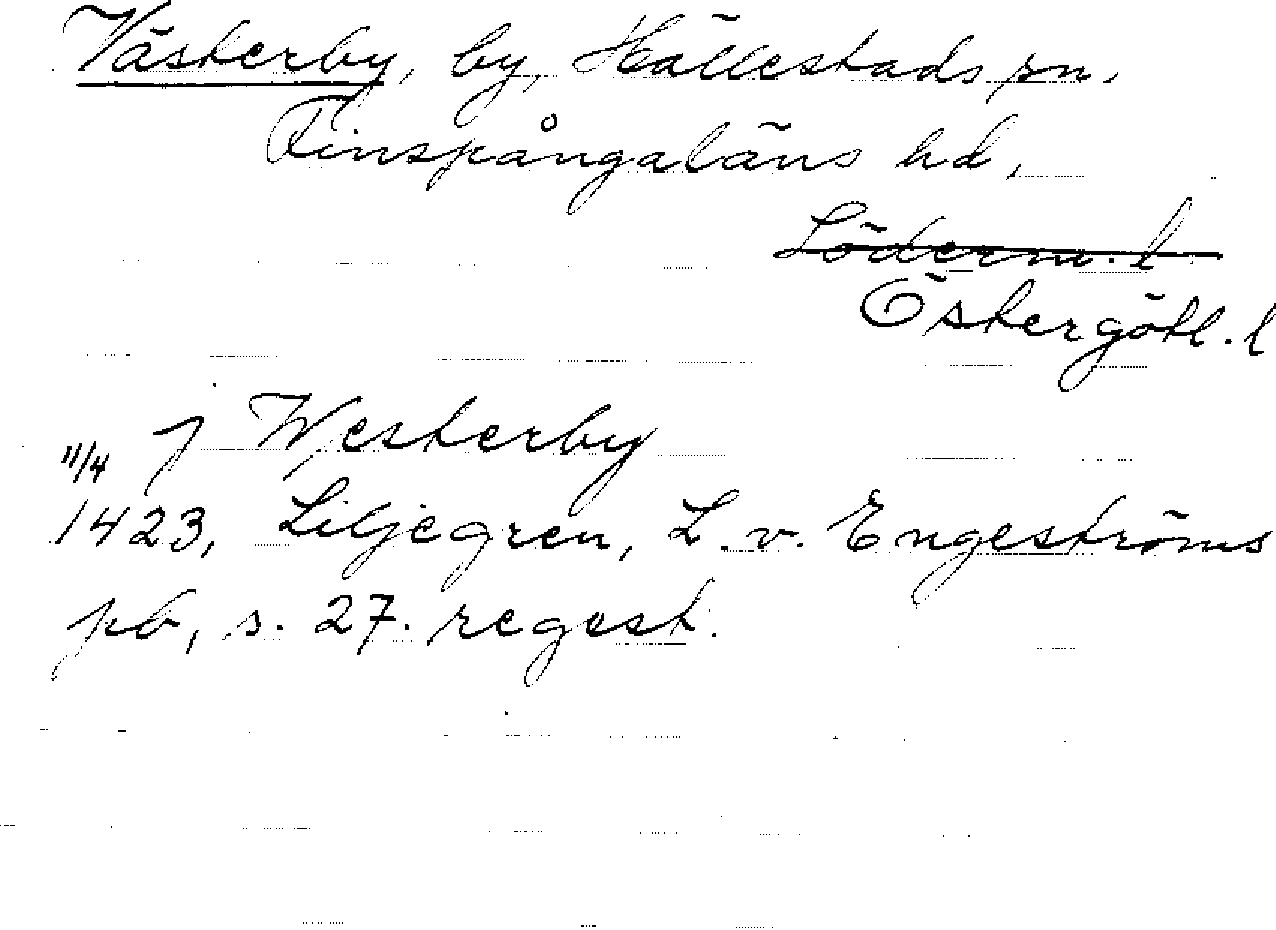 Västerby, by, Hällestads sn.
Finspångaläns hd,
Söderm. l
Östergötl. l
J Westerby
11/4
1423, Liljegren, L. v. Engeströms
pb, s. 27. regest.